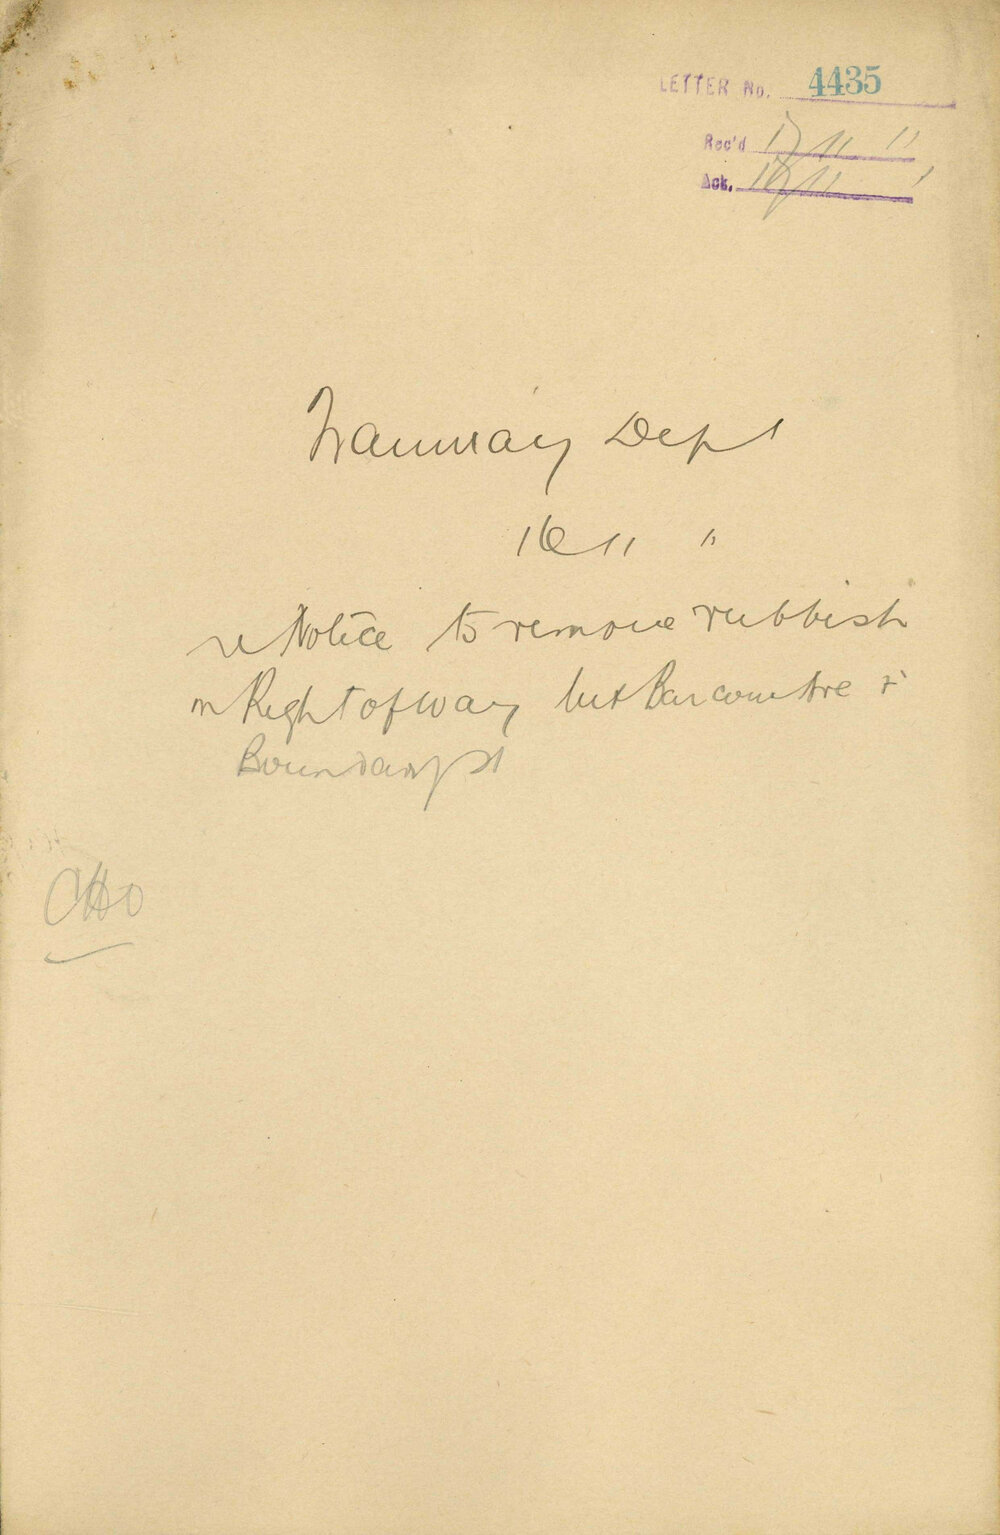 LETTER No. 4435
Rec'd 17/11 11
Ack.
Tramway Dept
16 11 11
re Notice to remove rubbish
in Right of way bet Barcom Ave &
Boundary St
CHO